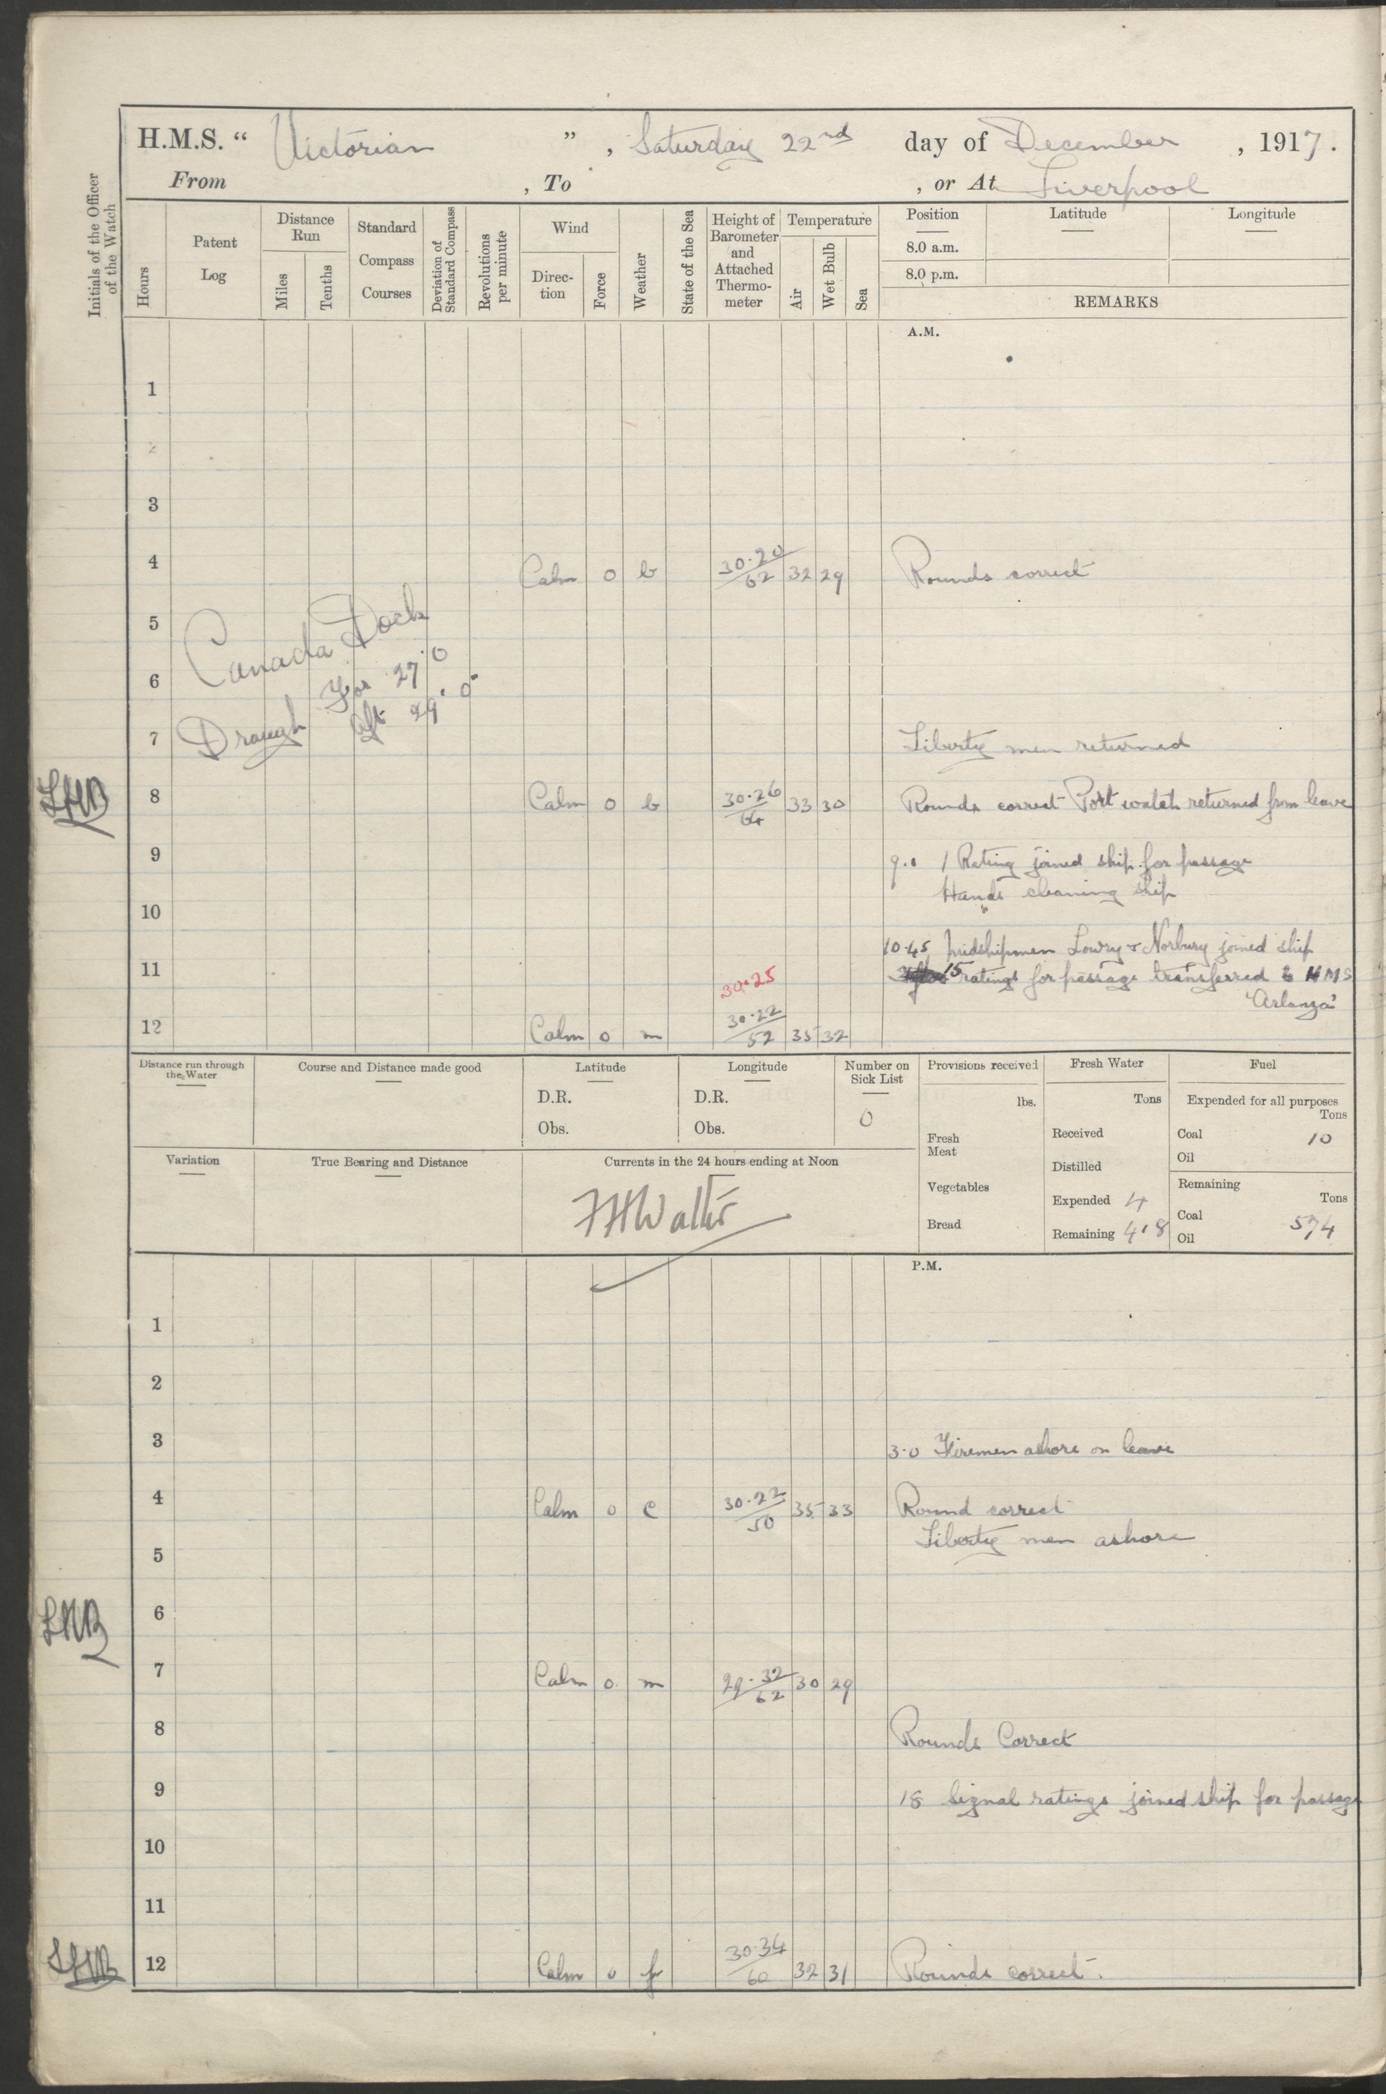 H.M.S. “ Victorian ” , Saturday 22nd day of December , 1917.
From , To , or At Liverpool
Initials of the Officer of the Watch
Hours
Patent Log
Distance Run
Miles
Tenths
Standard Compass Courses
Deviation of Standard Compass
Revolutions per minute
Wind
Direction
Force
Weather
State of the Sea
Height of Barometer and Attached Thermometer
Temperature
Air
Wet Bulb
Sea
Position Latitude Longitude
8.0 a.m.
8.0 p.m.
REMARKS
A.M.
1
2
3
4 Calm 0 b 30.20/62 32 29 Rounds correct
5
Canada Dock
6
For 27.0
Draugh Aft 29.0
7 Liberty men returned
LHB 8 Calm 0 b 30.26/64 33 30 Rounds correct Port watch returned from leave
9 9.0 1 Rating joined ship for passage
Hands cleaning ship
10
10.45 Midshipmen Lowry & Norbury joined ship
11 15 ratings for passage transferred to HMS
30.25 "Arlanza"
12 Calm 0 m 30.22/52 35 32
Distance run through the Water
Course and Distance made good
Latitude
D.R.
Obs.
Longitude
D.R.
Obs.
Number on Sick List
0
Provisions received
lbs.
Fresh Meat
Vegetables
Bread
Fresh Water
Tons
Received
Distilled
Expended 4
Remaining 418
Fuel
Expended for all purposes
Tons
Coal 10
Oil
Remaining
Tons
Coal 574
Oil
Variation
True Bearing and Distance
Currents in the 24 hours ending at Noon
FHWalter
P.M.
1
2
3 3.0 Firemen ashore on leave
4 Calm 0 c 30.22/50 35 33 Round correct
Liberty men ashore
5
LHB 6
7 Calm 0 m 29.32/62 30 29
8 Rounds Correct
9 18 Signal ratings joined ship for passage
10
11
LHB 12 Calm 0 f 30.34/60 32 31 Rounds correct.